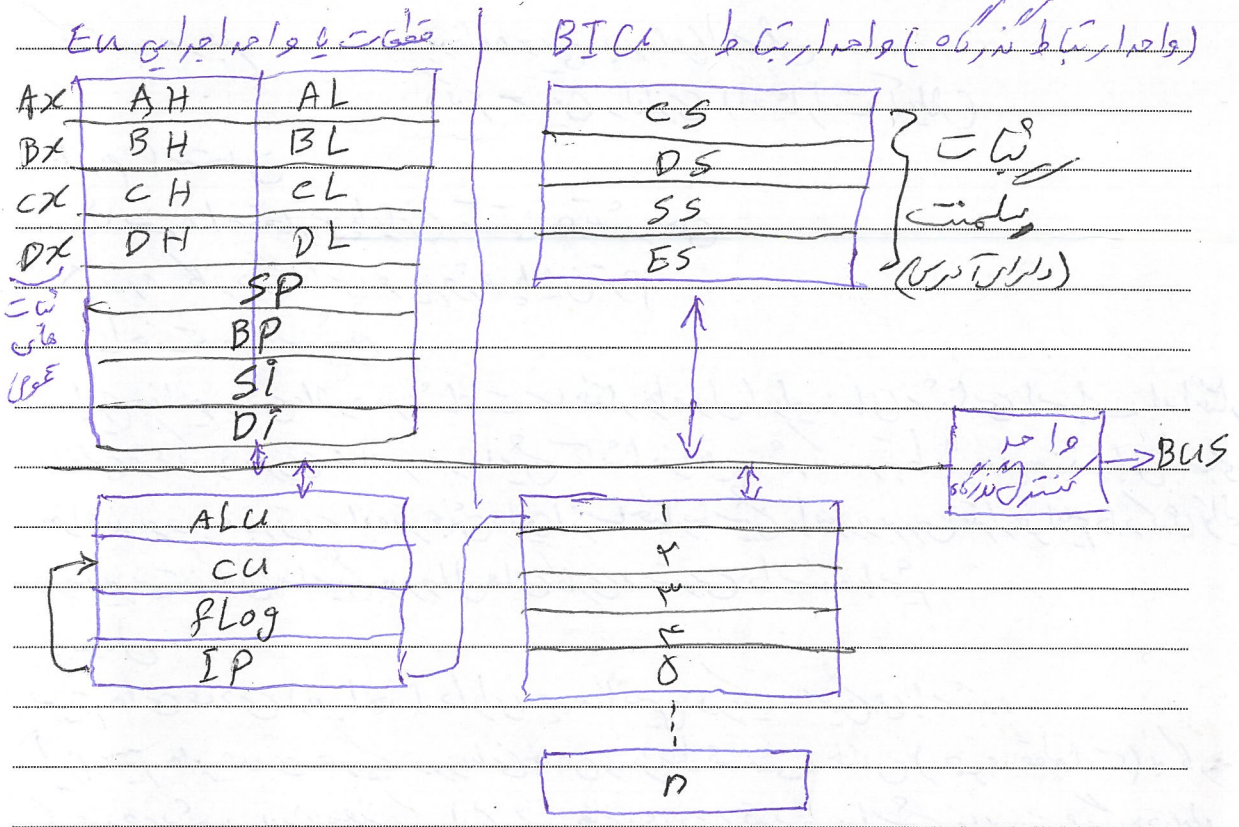 قطعات یا واحد اجرایی EU
BICU واحد ارتباط (واحد ارتباط گذرگاه)
AX AH AL
BX BH BL
CX CH CL
DX DH DL
ثبات
های
عمومی
SP
BP
Si
Di
CS
DS
SS
ES
ثبات
سگمنت
(دارای آدرس)
واحد
کنترل گذرگاه
BUS
ALU
CU
fLog
IP
۱
۲
۳
۴
۵
n